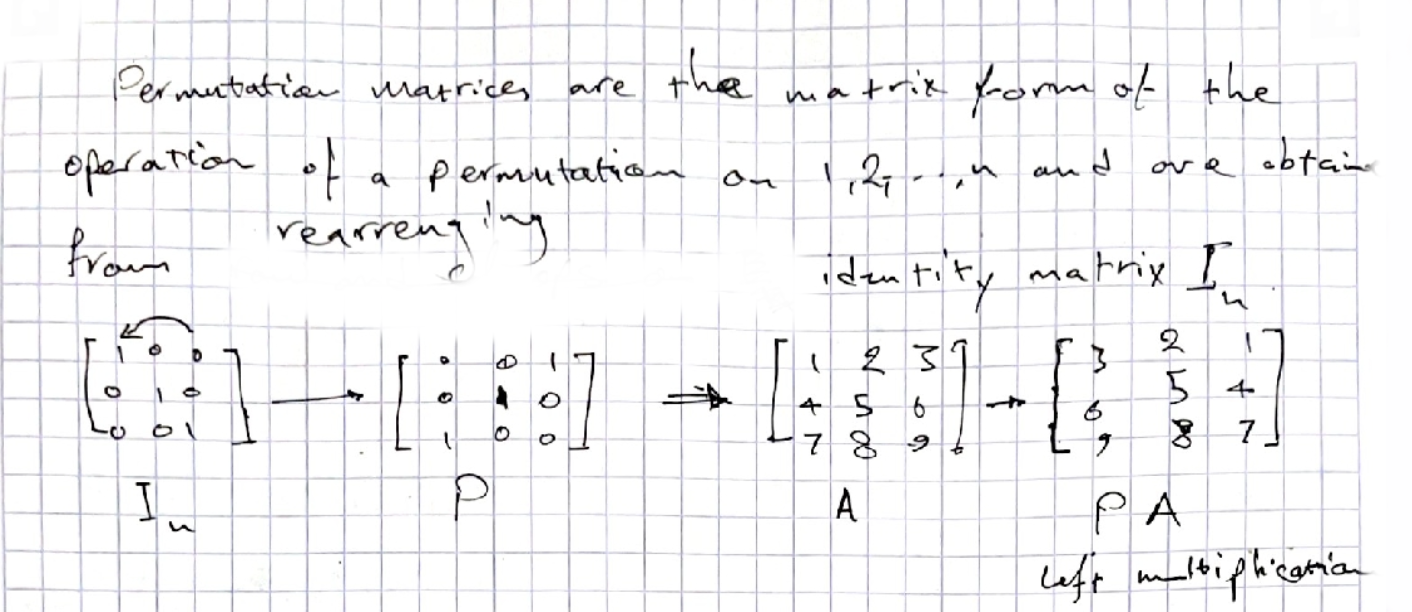 Permutation matrices are the matrix form of the
operation of a permutation on 1,2,...,n and are obtain
rearrenging
from identity matrix In.
[1 0 0 → [0 0 1 ⇒ [1 2 3 → [3 2 1
0 1 0 0 1 0 4 5 6 6 5 4
0 0 1] 1 0 0] 7 8 9] 9 8 7]
In P A PA
left multiplication